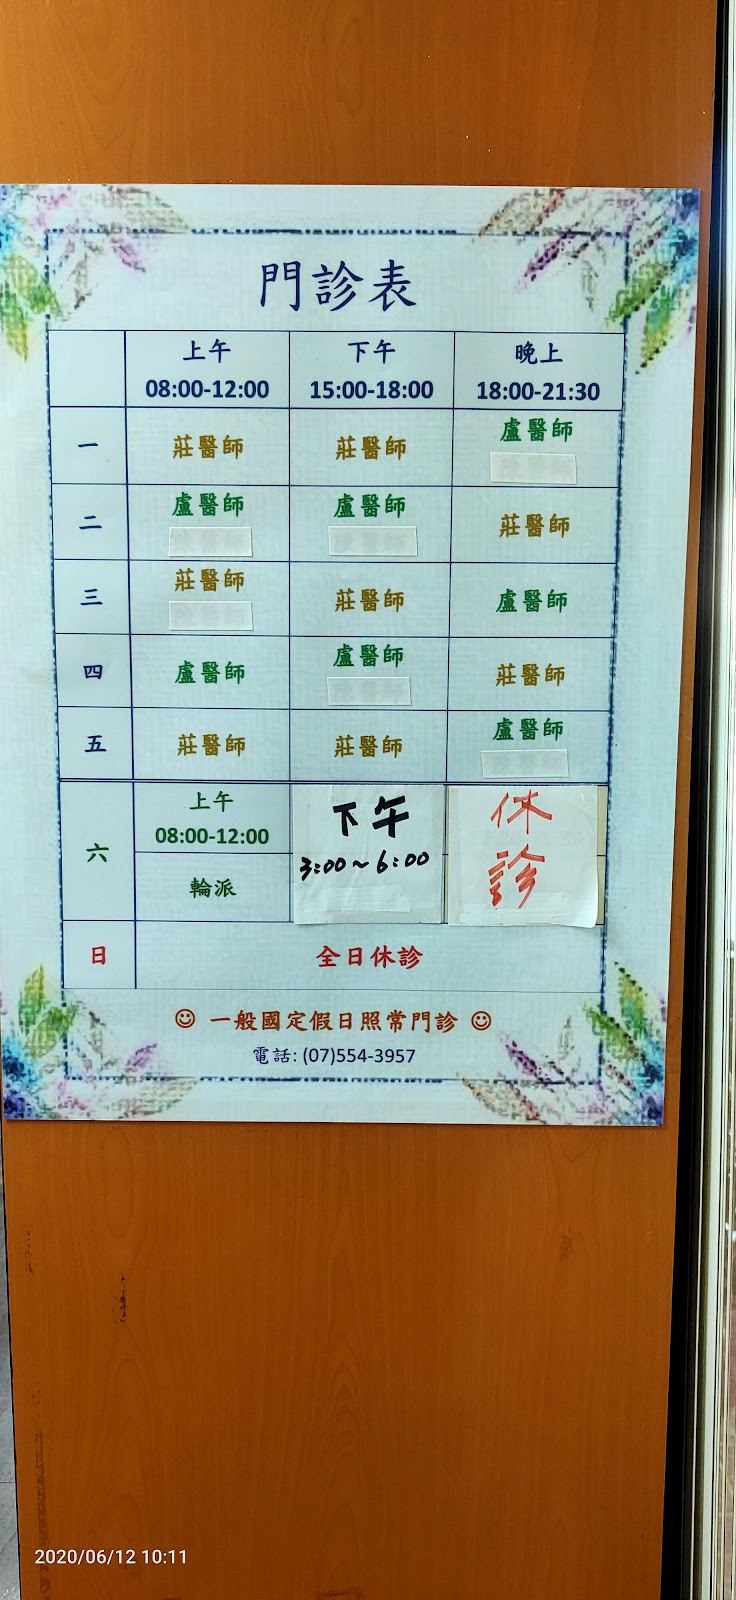 門診表
上午 下午 晚上
08:00-12:00 15:00-18:00 18:00-21:30
一 莊醫師 莊醫師 盧醫師
二 盧醫師 盧醫師 莊醫師
三 莊醫師 莊醫師 盧醫師
四 盧醫師 盧醫師 莊醫師
五 莊醫師 莊醫師 盧醫師
六
上午
08:00-12:00
輪派
下午
3:00~6:00
休
診
日 全日休診
☺ 一般國定假日照常門診 ☺
電話: (07)554-3957
2020/06/12 10:11